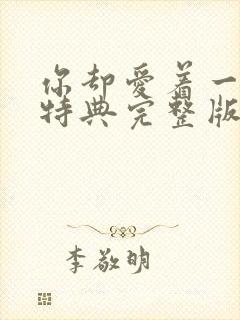 你却爱着一
特典完整版
李敬明